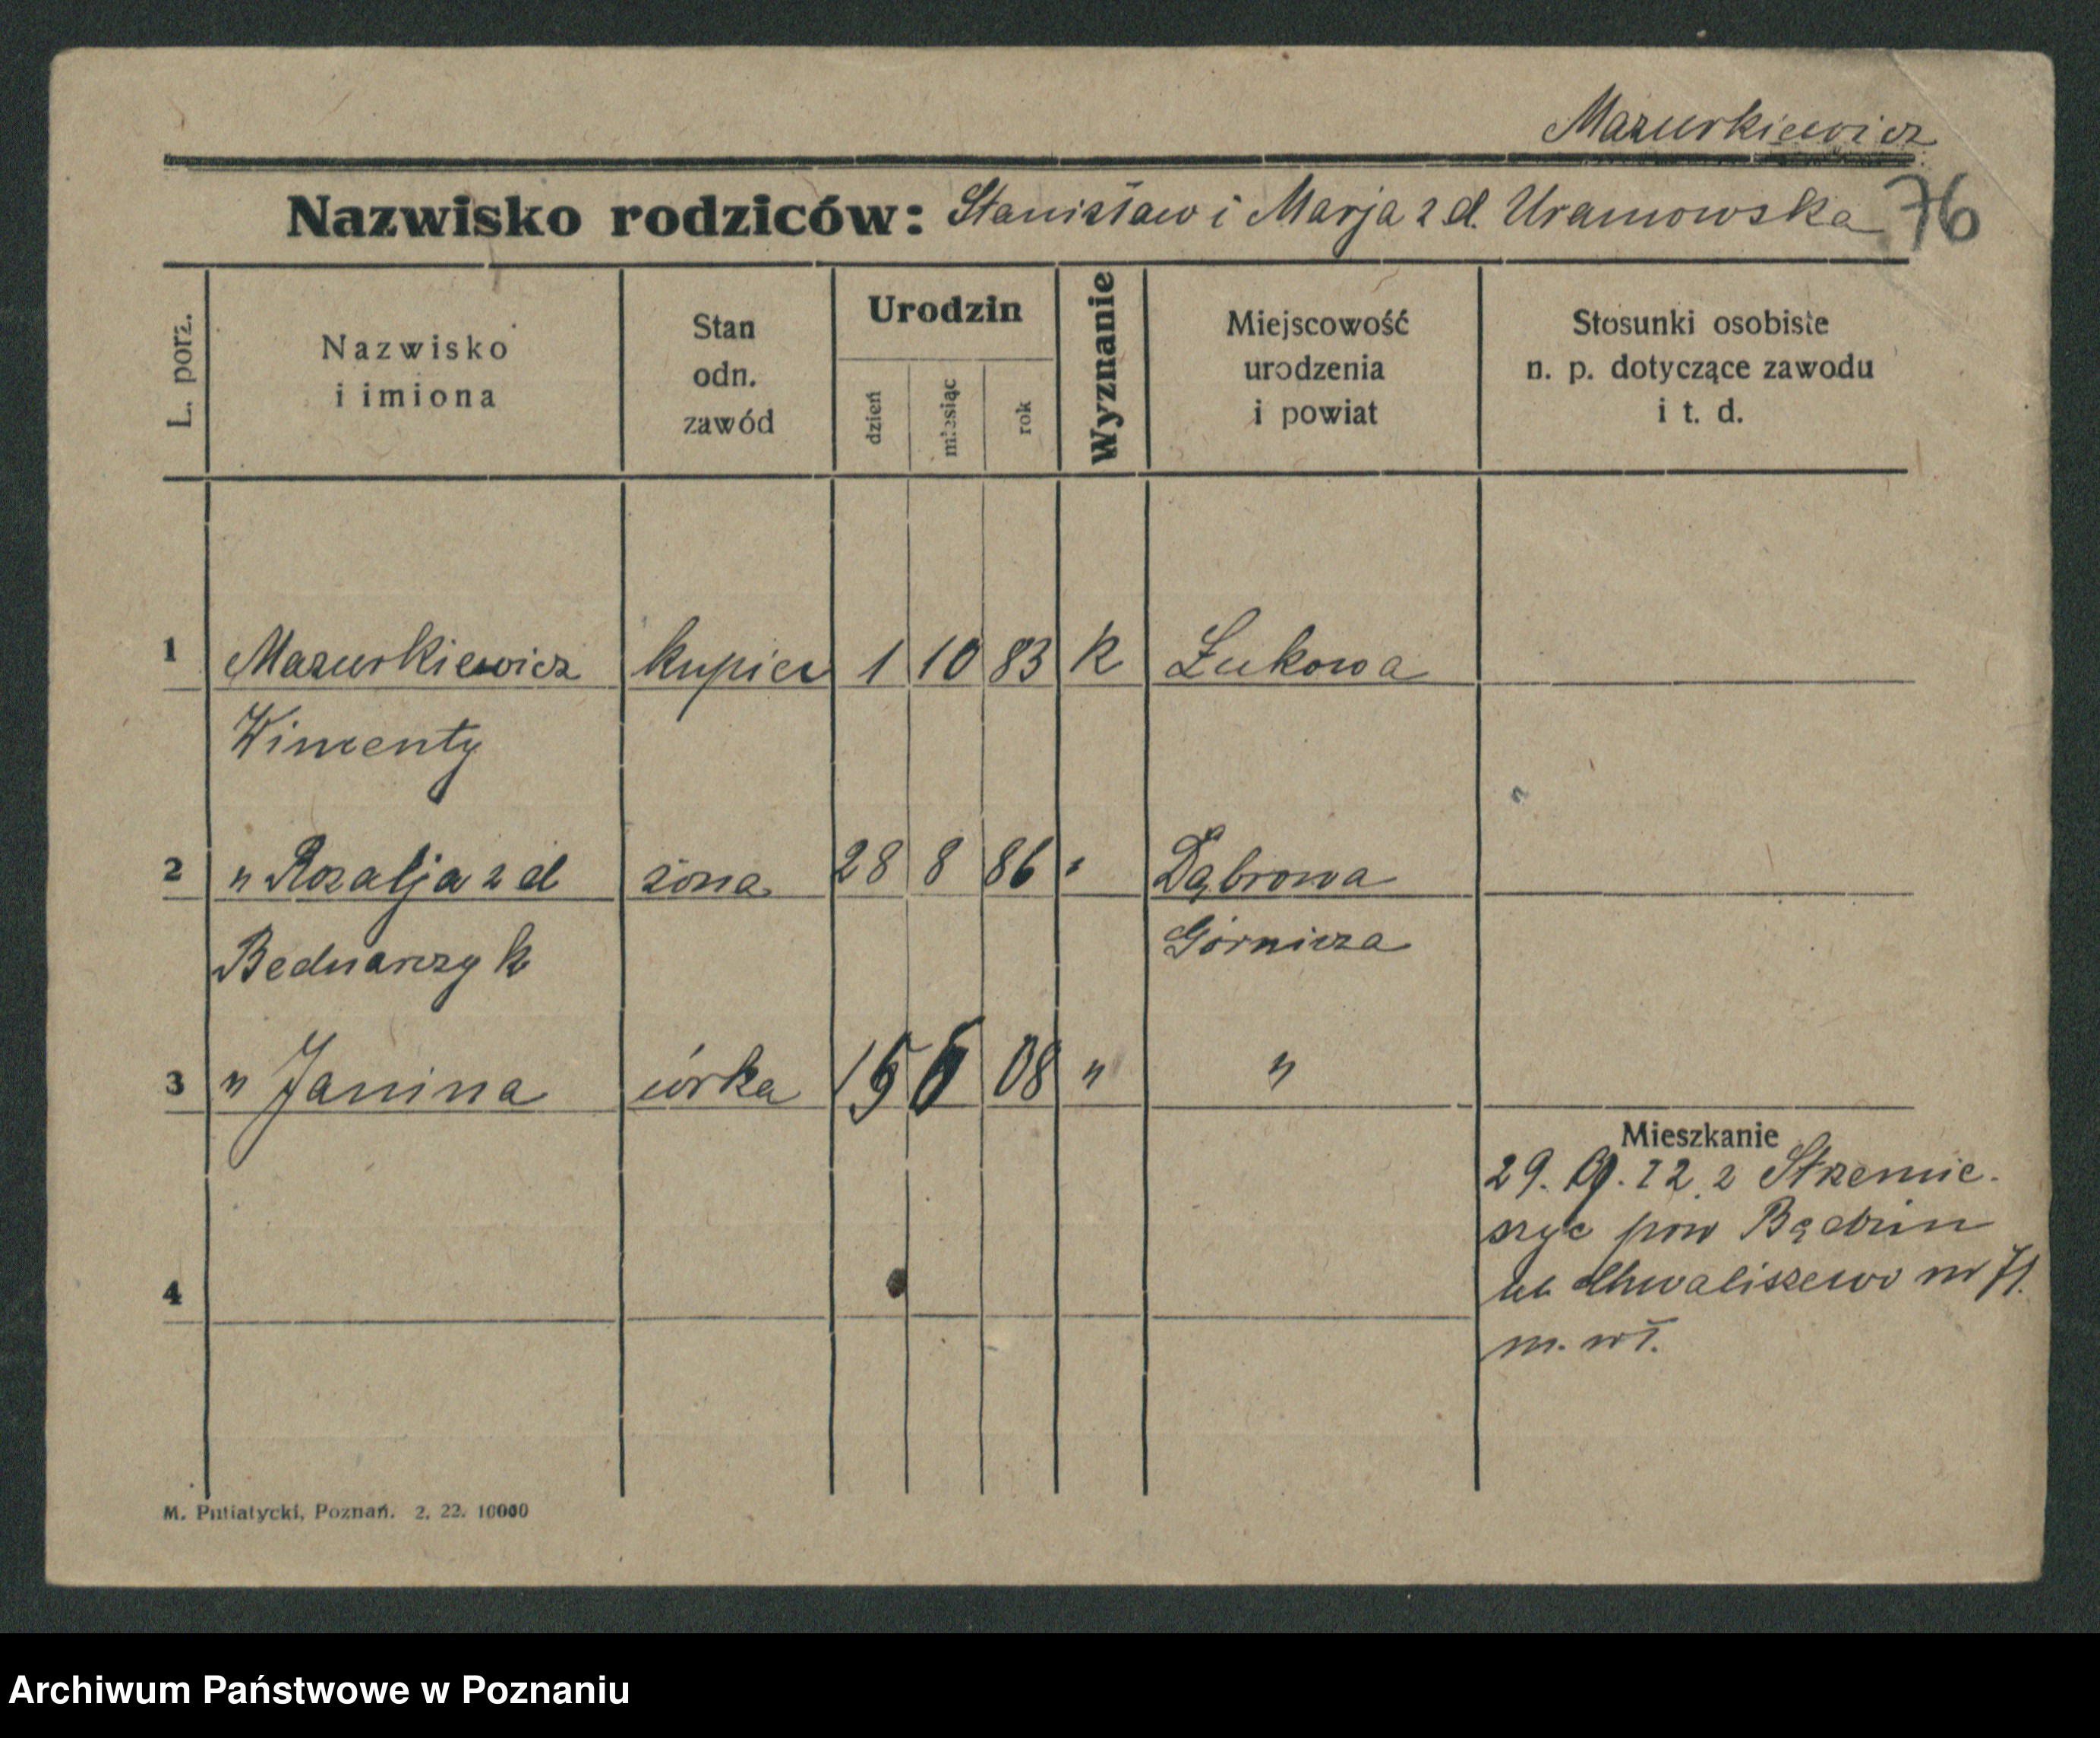 Mazurkiewicz
Nazwisko rodziców: Stanisław i Marja z d. Uramowska 76
L. porz.
Nazwisko
i imiona
Stan
odn.
zawód
Urodzin
dzień
miesiąc
rok
Wyznanie
Miejscowość
urodzenia
i powiat
Stosunki osobiste
n. p. dotyczące zawodu
i t. d.
1 Mazurkiewicz kupiec 1 10 83 k Łukowa
Wincenty
2 " Rozalja z d żona 28 8 86 " Dąbrowa
Bednarczyk Górnicza
3 " Janina córka 15 6 08 " "
Mieszkanie
29. 9. 22 z Strzemie-
szyc pow Będzin
Chwaliszewo nr 71.
m. wł.
4
M. Putiatycki, Poznań. 2. 22. 10000
Archiwum Państwowe w Poznaniu